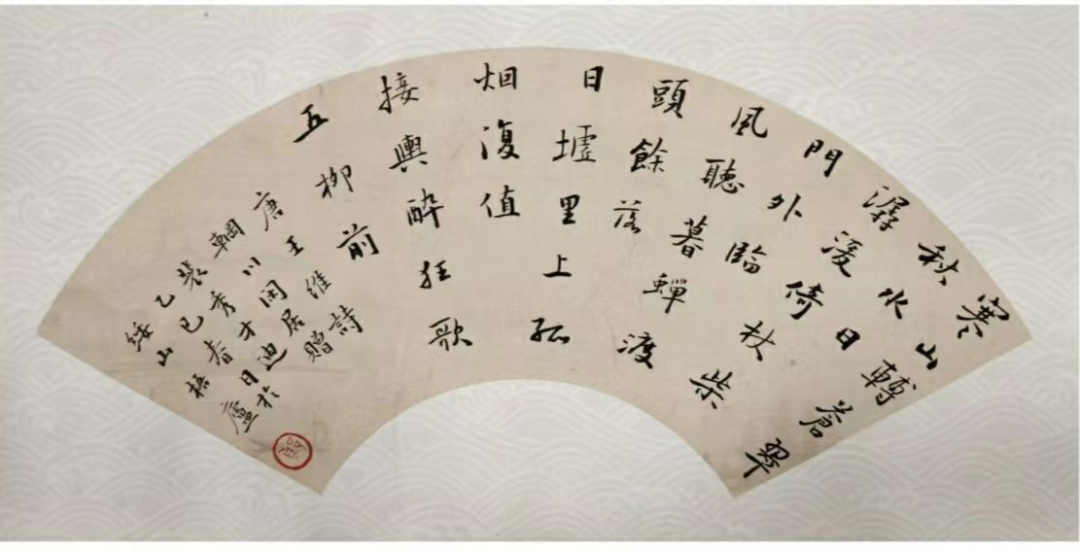 寒山轉蒼翠
秋水日
潺湲倚杖柴
門外臨
風聽暮蟬渡
頭餘落
日墟里上孤
烟復值
接輿酔狂歌
五柳前
唐王維詩
輞川閑居贈
裴秀才迪
乙巳春日於
綏山梧廬